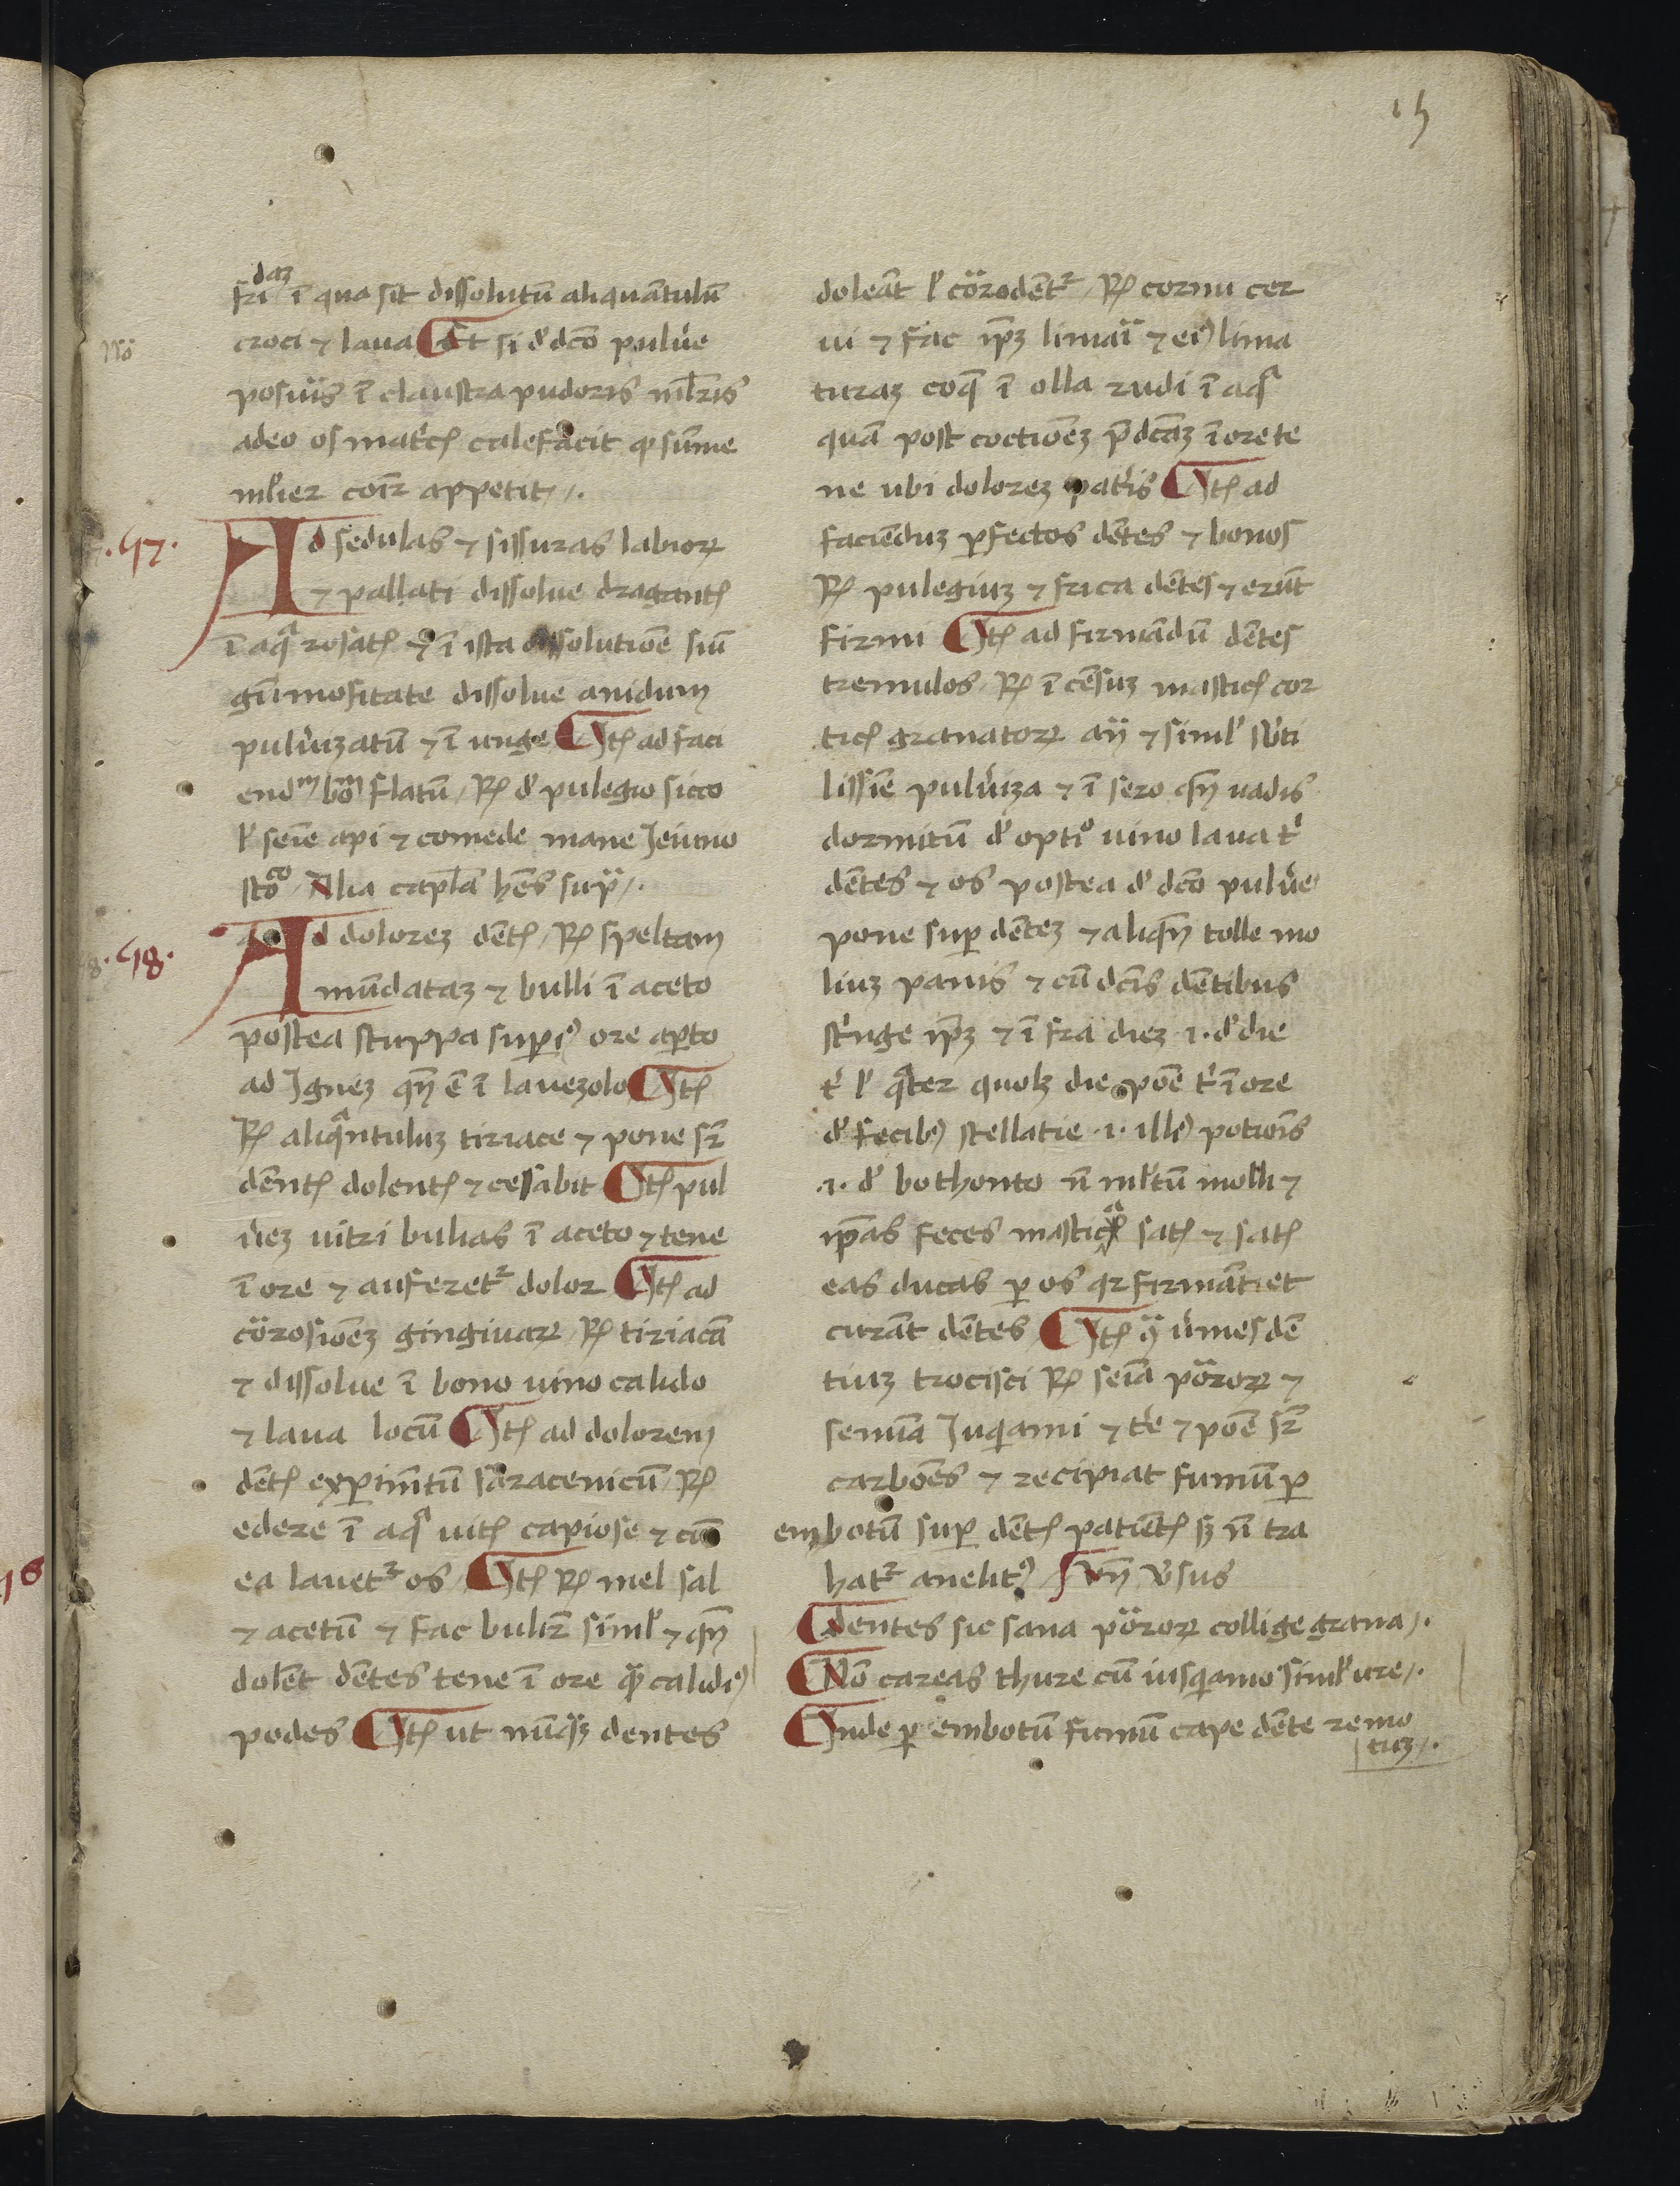 15
fridaꝫ ī qua sit dissolutū aliquātulū
croci ⁊ laua Et si d' dc̄o puluē
No
posuis ī claustra pudoris ml̄ris
adeo os mat'cꝭ calefacit ꝙ sūme
ml'ier coirꝫ appetit
.47.
Ad sedulas ⁊ fissuras labioꝝ
⁊ pallati dissolue dragantꝭ
ī aqͣ rosatꝭ ⁊ ī ista dissolutiōe siū
gūmositate dissolue amidum
puluꝫatū ⁊ ī unge Itꝭ ad faci
endm bom flatū ℞ d' pulegio sicco
l' seīe api ⁊ comede mane Jeiuno
stoco Alia capl̄a hn̄s supͣ.
.48.
Ad dolorez dētꝭ ℞ speltam
mūdataꝫ ⁊ bulli ī aceto
postea stuppa supi9 ore ap̄to
ad Igneꝫ qn̄ ē ī lauezolo Itꝭ
℞ aliqͣntuluꝫ tiriace ⁊ pone sr̄
dēntꝭ dolentꝭ ⁊ cessabit Itꝭ pul
u'eꝫ uitri bulias ī aceto ⁊ tene
ī ore ⁊ auferetᷣ dolor Itꝭ ad
corosiōeꝫ gingiuaꝝ ℞ tiriacā
⁊ dissolue ī bono uino calido
⁊ laua locū Itꝭ ad dolorem
dētꝭ expim̄tū saracenicū ℞
edere ī aqͣ uitꝭ capiose ⁊ cum
ea lauetᷣ os Itꝭ ℞ mel sal
⁊ acetū ⁊ fac bulirꝫ siml' ⁊ qn̄
dolēt dētes tene ī ore qͣ calidi9
podes Itꝭ ut nūqͣꝫ dentes
doleāt l' corodētᷣ ℞ cornu cer
ui ⁊ fac ip̄ꝫ limai ⁊ ei9 lima
turaꝫ coq̄ ī olla rudi ī aqͣ
quā post coctiōeꝫ p̄dcāꝫ ī ore te
ne ubi dolorez pat'is Itꝭ ad
faciēduꝫ ꝑfectos dētes ⁊ bonos
℞ pulegiuꝫ ⁊ frica dētes ⁊ erūt
firmi Itꝭ ad firmādū dētes
tremulos ℞ ī cēsuꝫ masticꝭ cor
ticꝭ granatoꝝ aῆ ⁊ siml' s'bti
lissīe pulu'iza ⁊ ī sero qn̄ uadis
dormitū d' optīo uino laua t'
dētes ⁊ os postea d' dc̄o puluē
pone suꝑ dēteꝫ ⁊ aliqn̄ tolle mo
liuꝫ panis ⁊ cū dc̄is dētibus
st'nge ip̄ꝫ ⁊ ī fra dieꝫ .i. d' die
t' l' qͣter quolꝫ die pōe t' ī ore
d' fecib9 stellatie .i. illi9 potiōis
.i. d' bothonto n̄ ml'tū molli ⁊
ip̄as feces mastica satꝭ ⁊ satꝭ
eas ducas ꝑ os qr firmāt et
curāt dētes Itꝭ ꝯͣ u'mes dē
tiuꝫ trocisci ℞ seīa poroꝝ ⁊
semīa Iuqͥami ⁊ t'e ⁊ pōe sr̄
carbōes ⁊ recipiat fumū ꝑ
embotū suꝑ dētꝭ patiētꝭ sꝫ n̄ tra
hatᷣ anelit9 Vn̄ v'sus
Dentes sic sana poroꝝ collige grana.
No careas thure cū iusqͥamo siml' ure.
Inde ꝑ embotū fumū cape dēte remo
tuꝫ.